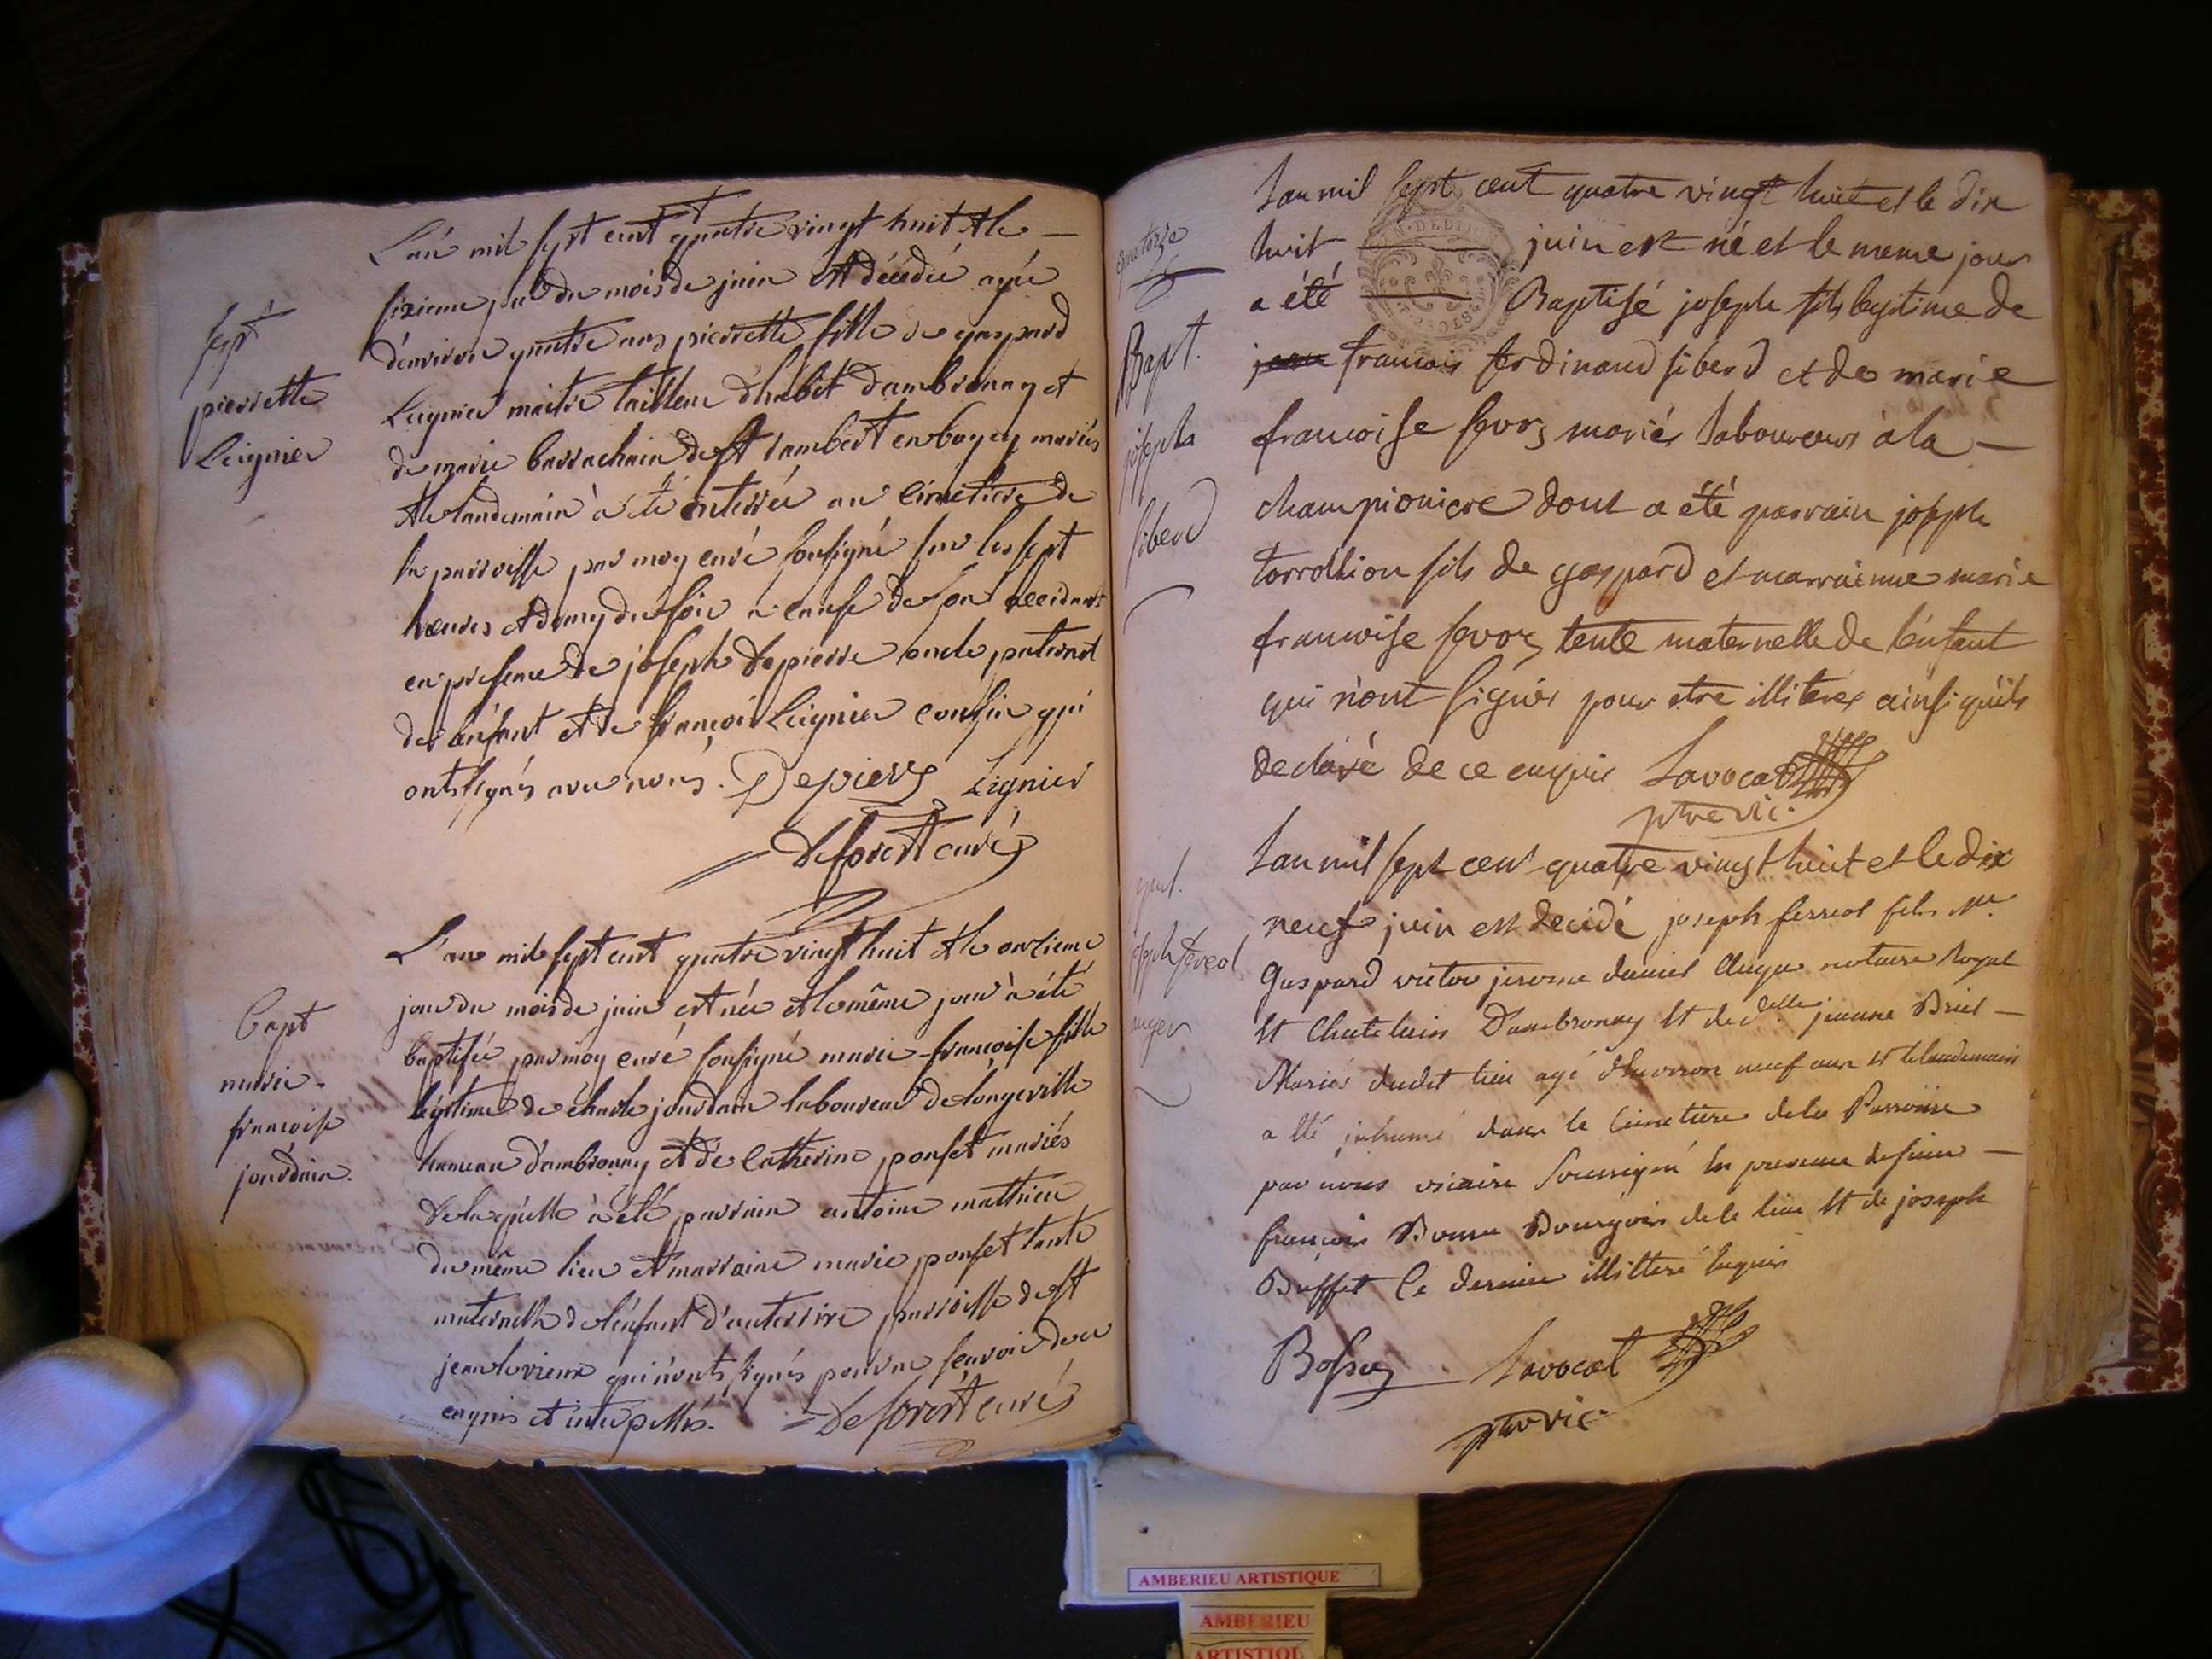 L'an mil sept cent quatre vingt huit et le
sixieme jour du mois de juin est décédée agée
d'environ quatre ans pierrette fille de gaspard
Leignier maitre tailleur d'habit d'ambronay et
de marie barrachin de st rambert en bugey mariés
et le landemain à été enterrée au cimetiere de
la parroisse par moy curé soussigné sur les sept
heures et demy du soir a cause de son accidant
en presence de joseph Depierre oncle paternel
de l'enfant et de françois Leignier cousin qui
ont signés avec nous. Depierre Leignier
Deforest curé
sept
pierrette
Leignier
L'an mil sept cent quatre vingt huit et le onzieme
jour du mois de juin est née et le même jour à été
baptisée par moy curé soussigné marie-françoise fille
légitime de charle jourdain laboureur de longeville
hameau d'ambronay et de Catherine ponset mariés
de laquelle à été parrain antoine mathieu
du même lieu et marraine marie ponset tante
maternelle de l'enfant d'hauterive parroisse de st
jean le vieux qui n'ont signés pour ne sçavoir de ce
enquis et interpellés. Deforest curé
Bapt
marie-
francoise
jourdain.
quatorze
Lan mil sept cent quatre vingt huit et le dix
huit juin est né et le meme jour
a été Baptisé joseph fils legitime de
jean francois ferdinand siberd et de marie
francoise sevoz mariés laboureurs à la
championiere dont a été parrain joseph
torrollion fils de gaspard et marrainne marie
francoise sevoz tente maternelle de l'enfant
qui n'ont signés pour etre illiterés ainsi qu'ils
declaré de ce enquis Lavocat
ptre vic.
Bapt.
joseph
siberd
Lan mil sept cent quatre vingt huit et le dix
neuf juin est decedé joseph ferreol fils Me
Gaspard victor jerome daniel Auger notaire Royal
et Chatelain D'ambronay et de delle jeanne Briel
Mariés dudit lieu agé d'environ neuf ans et le landemain
a été inhumé dans le Cimetiere de la Parroisse
par nous vicaire Soussigné en presence de sieur
françois Bourgois de ce lieu et de joseph
Buffet ce dernier illitteré enquis
Lavocat
ptre vic.
joseph fereol
auger
AMBERIEU ARTISTIQUE
AMBERIEU
ARTISTIQUE